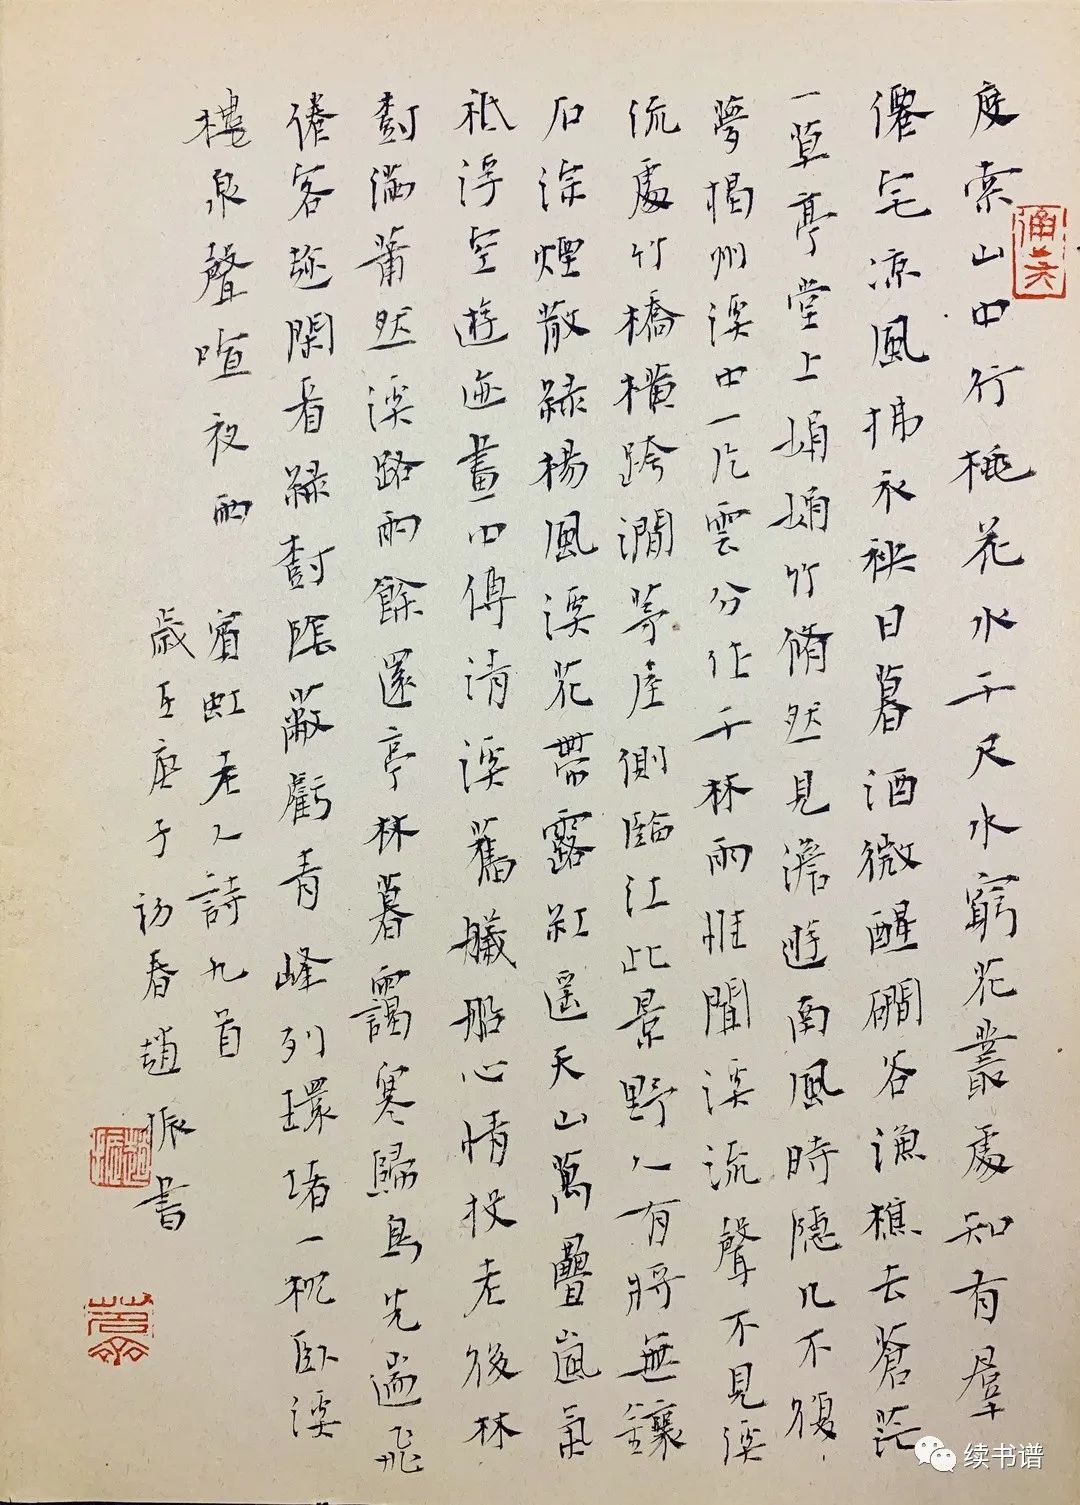 度索山中行桃花水千尺水窮花叢處知有群
僊宅涼風拂衣袂日暮酒微醒磵谷漁樵去蒼茫
一草亭堂上娟娟竹翛然見澹遊南風時隱几不復
夢揚州溪中一片雲分作千林雨惟聞溪流聲不見溪
流處竹橋橫跨澗茅屋側臨江此景野人有將無鑲
石淙煙散綠楊風溪花帶露紅遥天山萬疊嵐氣
祇浮空遊迹畫中傳清溪舊艤船心情投老後林
樹滿蕭然溪路雨餘還亭林暮靄寒歸鳥先遄飛
倦客遊閑看綠樹隱蔽虧青峰列環堵一枕臥溪
樓泉聲喧夜雨
賓虹老人詩九首
歲在庚子初春趙振書
续书谱